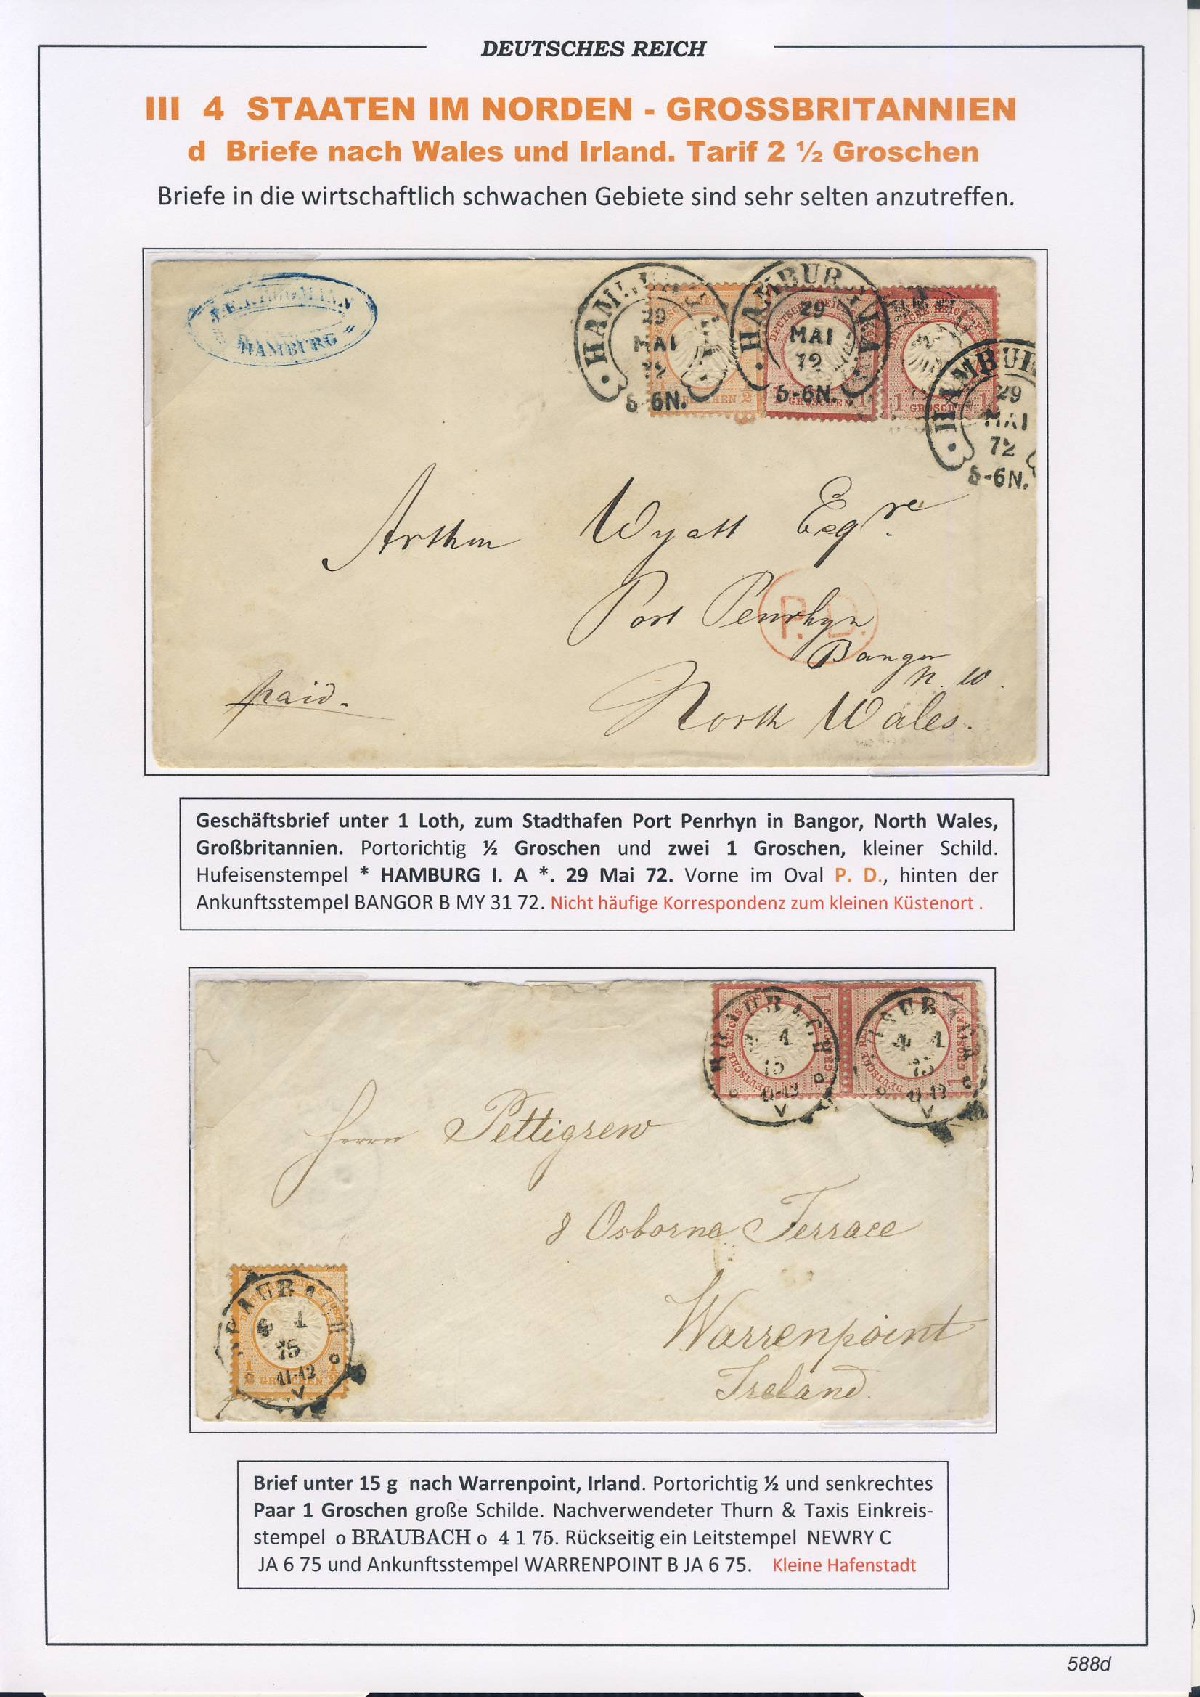 DEUTSCHES REICH
III 4 STAATEN IM NORDEN - GROSSBRITANNIEN
d Briefe nach Wales und Irland. Tarif 2 ½ Groschen
Briefe in die wirtschaftlich schwachen Gebiete sind sehr selten anzutreffen.
HAMBURG
HAMBURG I.A.
29
MAI
72
5-6N.
HAMBURG I.A.
29
MAI
72
5-6N.
HAMBUR
29
MAI
72
5-6N.
1 GROSCHEN 1
Arthur Wyatt Esqre.
Port Penrhyn
P.D.
Bangor
N. W.
paid.
North Wales.
Geschäftsbrief unter 1 Loth, zum Stadthafen Port Penrhyn in Bangor, North Wales,
Großbritannien. Portorichtig ½ Groschen und zwei 1 Groschen, kleiner Schild.
Hufeisenstempel * HAMBURG I. A *. 29 Mai 72. Vorne im Oval P. D., hinten der
Ankunftsstempel BANGOR B MY 31 72. Nicht häufige Korrespondenz zum kleinen Küstenort .
BRAUBACH
4 1
75
11-12
V
BRAUBACH
4 1
75
11-12
V
Herrn Pettigrew
8 Osborna Terrace
Warrenpoint
Ireland.
BRAUBACH
4 1
75
11-12
V
Brief unter 15 g nach Warrenpoint, Irland. Portorichtig ½ und senkrechtes
Paar 1 Groschen große Schilde. Nachverwendeter Thurn & Taxis Einkreis-
stempel o BRAUBACH o 4 1 75. Rückseitig ein Leitstempel NEWRY C
JA 6 75 und Ankunftsstempel WARRENPOINT B JA 6 75. Kleine Hafenstadt
588d